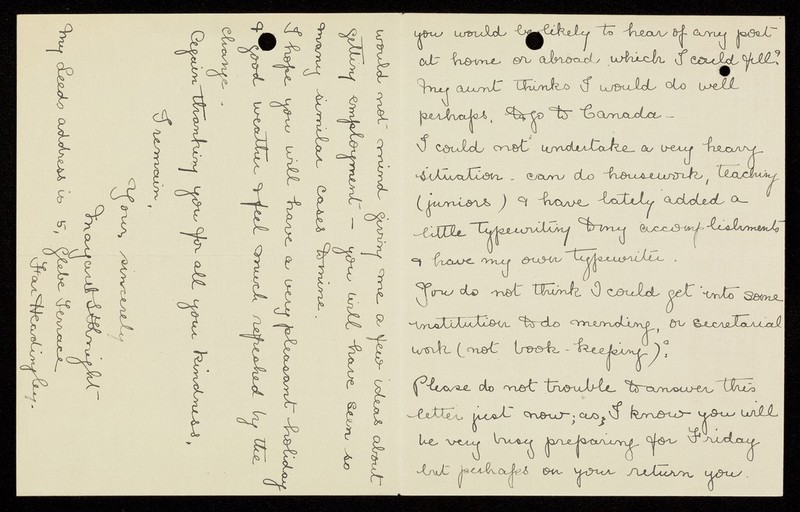 you would be likely to hear of any post
at home or abroad which I could fill?
My aunt thinks I would do well
perhaps, to go to Canada -
I could not undertake a very heavy
situation - can do housework, teaching
(juniors) & have lately added a
little typewriting to my accomplishments
& have my own typewriter.
You do not think I could get into some
institution to do mending, or secretarial
work (not book-keeping)?
Please do not trouble to answer this
letter just now; as, I know you will
be very busy preparing for Friday
but perhaps on your return you
would not mind giving me a few ideas about
getting employment - you will have seen so
many similar cases to mine.
I hope you will have a very pleasant holiday
& good weather & feel much refreshed by the
change.
Again thanking you for all your kindness,
I remain,
Yours sincerely
Margaret
My Leeds address is 5, Glebe Terrace
Far Headingley.